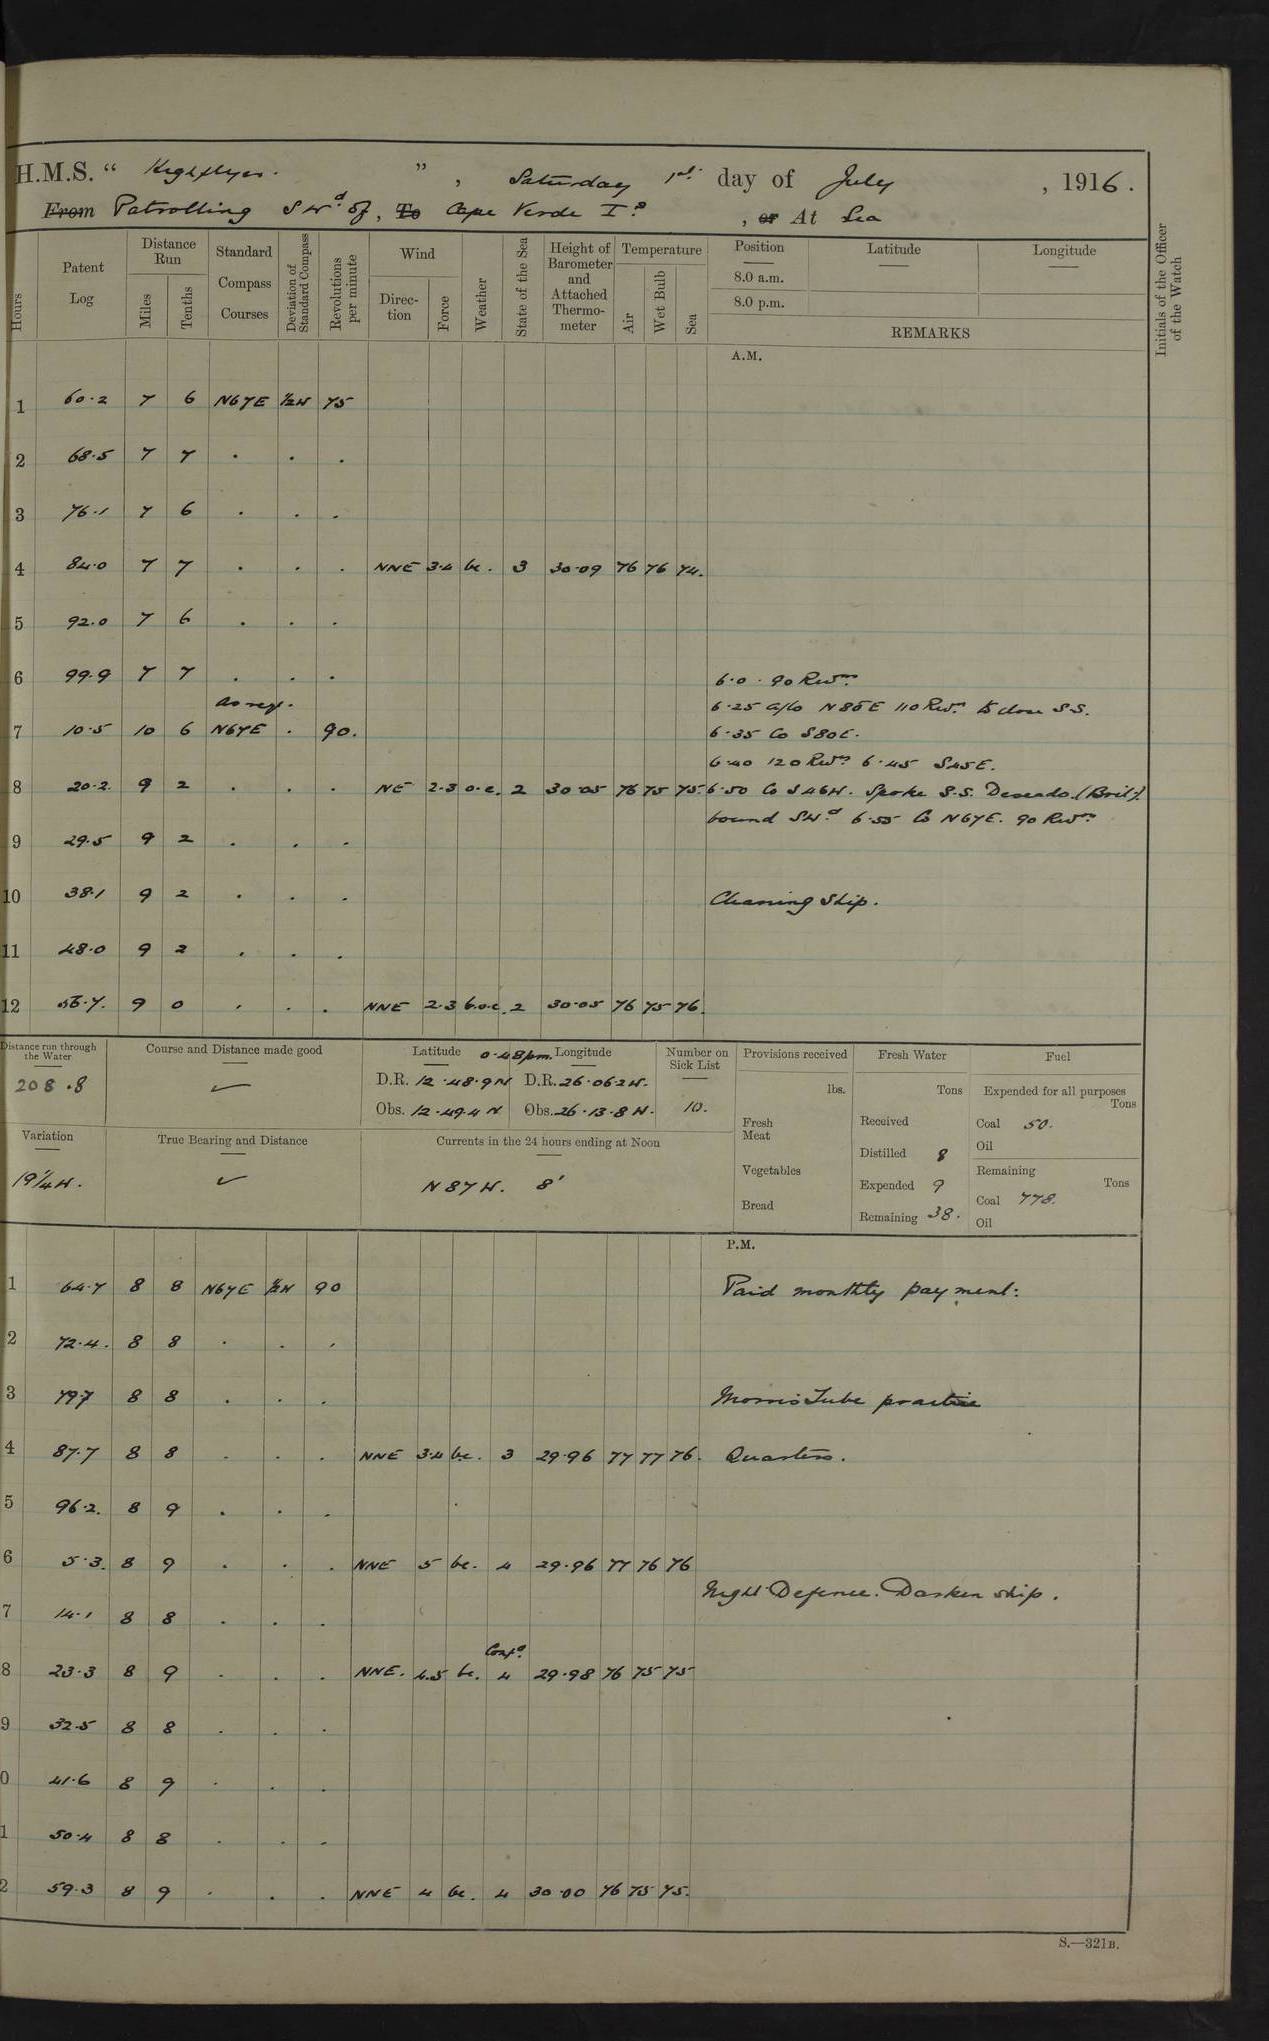 H.M.S. “ Highflyer. ”, Saturday 1st day of July, 1916.
From Patrolling SWd of, To Cape Verde Is, or At Sea
Hours
Patent Log
Distance Run
Miles
Tenths
Standard Compass Courses
Deviation of Standard Compass
Revolutions per minute
Wind
Direction
Force
Weather
State of the Sea
Height of Barometer and Attached Thermometer
Temperature
Air
Wet Bulb
Sea
Position
8.0 a.m.
8.0 p.m.
Latitude
Longitude
REMARKS
Initials of the Officer of the Watch
A.M.
1 60.2 7 6 N67E ½W 75
2 68.5 7 7 . . .
3 76.1 7 6 . . .
4 84.0 7 7 . . . NNE 3.4 bc. 3 30.09 76 76 74.
5 92.0 7 6 . . .
6 99.9 7 7 . . . 6.0. 90 Revns
as req. 6.25 a/co N85E 110 Revns to close S.S.
7 10.5 10 6 N67E . 90. 6.35 Co S80E.
6.40 120 Revns 6.45 S45E.
8 20.2. 9 2 . . . NE 2.3 o.c. 2 30.05 76 75 75. 6.50 Co S46W. Spoke S.S. Deseado. (Brit).
bound SWd 6.55 Co N67E. 90 Revns
9 29.5 9 2 . . .
10 38.1 9 2 . . . Cleaning Ship.
11 48.0 9 2 . . .
12 56.7. 9 0 . . . NNE 2.3 b.o.c. 2 30.05 76 75 76.
Distance run through the Water
208.8
Course and Distance made good
Latitude 0.48pm. Longitude
D.R. 12.48.9N D.R. 26.06.2W.
Obs. 12.49.4 N Obs. 26.13.8 W.
Number on Sick List
10.
Variation
19¼W.
True Bearing and Distance
Currents in the 24 hours ending at Noon
N 87 W. 8'
Provisions received
lbs.
Fresh Meat
Vegetables
Bread
Fresh Water
Tons
Received
Distilled 8
Expended 9
Remaining 38.
Fuel
Expended for all purposes
Tons
Coal 50.
Oil
Remaining
Tons
Coal 778.
Oil
P.M.
1 64.7 8 8 N67E ½W 90 Paid monthly payment.
2 72.4. 8 8 . . .
3 79.7 8 8 . . . Morris Tube practice
4 87.7 8 8 . . . NNE 3.4 bc. 3 29.96 77 77 76. Quarters.
5 96.2. 8 9 . . .
6 5.3. 8 9 . . . NNE 5 bc. 4 29.96 77 76 76
Night Defence. Darken ship.
7 14.1 8 8 . . .
8 23.3 8 9 . . . NNE. 4.5 bc. 4 29.98 76 75 75
9 32.5 8 8 . . .
0 41.6 8 9 . . .
1 50.4 8 8 . . .
2 59.3 8 9 . . . NNE 4 bc. 4 30.00 76 75 75.
S.—321B.